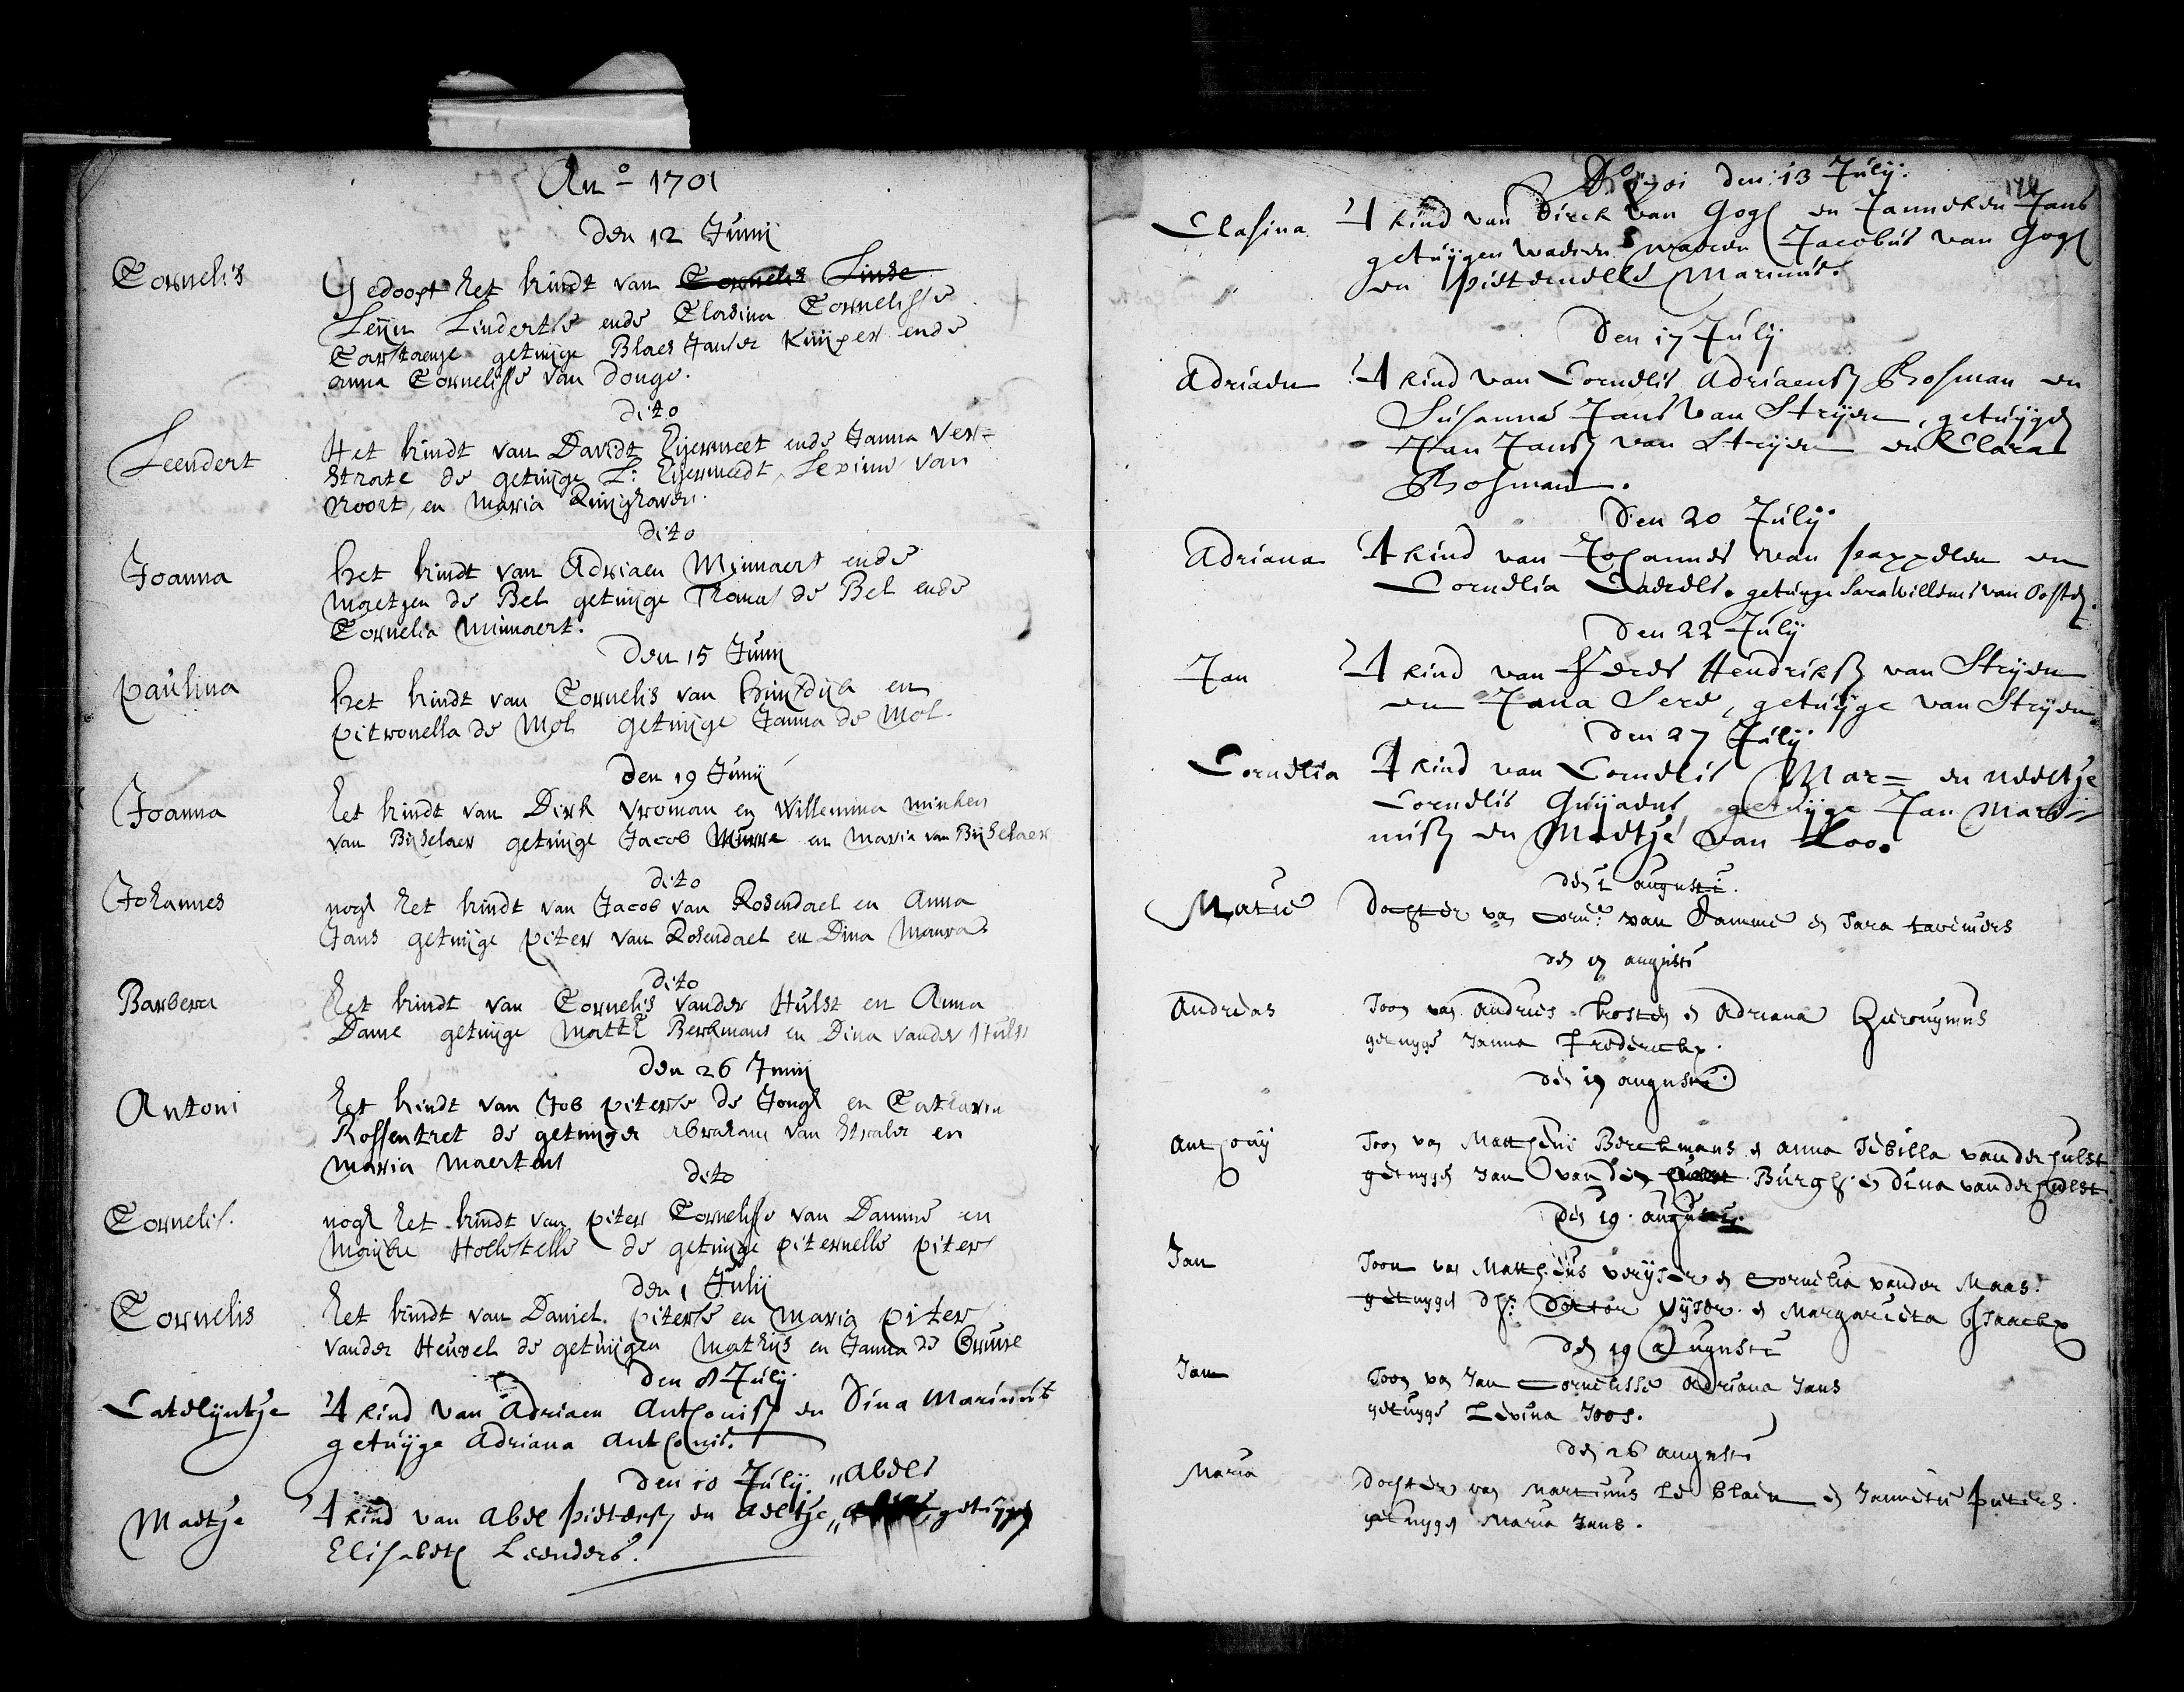 Anº 1701
Den 12 Junij
Cornelis
Gedoopt het kindt van Cornelis Linde
Leijn Lindertse ende Clasina Cornelisse
getuijge Blaes Janse Kuijper ende
anna Cornelisse van Donge.
dito
Leendert
Het kindt van Davidt Eijermeet ende Janna Ver=
strate de getuijge L: Eijermeedt, Levina van
Noort, en Maria
dito
Joanna
het kindt van Adriaen Minnaert ende
Maetgen de Bel getuijge Thomas de Bel ende
Cornelia Minnaert.
Den 15 Junij
Paulina
het kindt van Cornelis van en
pitronella de Mol getuijge Janna de Mol.
Den 19 Junij
Joanna
het kindt van Dirk Vroman en Willemina
van Bijselaer getuijge Jacob en Maria van Bijselaer
dito
Johannes
nogh het kindt van Jacob van Rosendael en Anna
Jans getuijge piter van Rosendael en Dina
dito
Barbera
het kindt van Cornelis vander Hulst en Anna
Dame getuijge Matth Berkmans en Dina vander Hulst
Den 26 Junij
Antoni
het kindt van Job piterse de Jongh en Catharin
Rossentret de getuijge Abraham van Strale en
Maria Maertens
dito
Cornelis.
nogh het kindt van piter Cornelisse van Damme en
Maijke Hollestelle de getuijge piternelle piters
den 1 Julij
Cornelis
het kindt van Daniel piterse en Maria piter
vander Heuvel de getuijgen Mathijs en Janna de
Den 8 Julij.
Catelijntje
't kind van Adriaen Anthonisz en Dina Marinus
getuijge Adriana Anthonis.
Den 10 Julij. "Abels
Maetje
't kind van Abel pieterse en Aeltje " getuijge
Elisabeth Leenders.
Aº 1701 den: 13 Julij.
Clasina
't kind van Dirck van Gogh en Janneken Jans
getuijgen waeren Jacobus van Gogh
en pieternelle Marinus.
Den 17 Julij
Adriaen
't kind van Cornelis Adriaensz Bosman en
Susanna Jans van Strijen, getuijge
Jan Jansz van Strijen en Klara
Bosman.
Den 20 Julij
Adriana
't kind van Johannes van en
Cornelia getuijge Sara Willems van Oosten.
Den 22 Julij
Jan
't kind van Hendriksz van Strijen
en Jana Sere, getuijge van Strijen
Den 27 Julij
Cornelia
't kind van Cornelis Mar= en Neeltje
Cornelis getuijge Jan Mari=
nisz en Maetje van Loo.
den 1 augusti.
Matie
Dochter van Corn: van Damme en Sara
den 17 augusti
Andreas
Soon van Andries en Adriana Hieronymus
getuijge Janna Frederickx.
den 19 augusti
Anthonij
Soon van Mattheus Berckmans en Anna Sibilla vander hulst
getuijgen Jan van den Burgh en Dina vander hulst
den 19. augusti.
Jan
Soon van Mattheus en Cornelia vander Maas.
getuijgen Doctor en Margarieta Isaackx
den 19 augusti
Jan
Soon van Jan Cornelisse Adriana Jans
getuijge Levina Joos.
den 26 augusti
Maria
Dochter van Martinus en Jannetie pieters.
getuijgen Maria Jans.